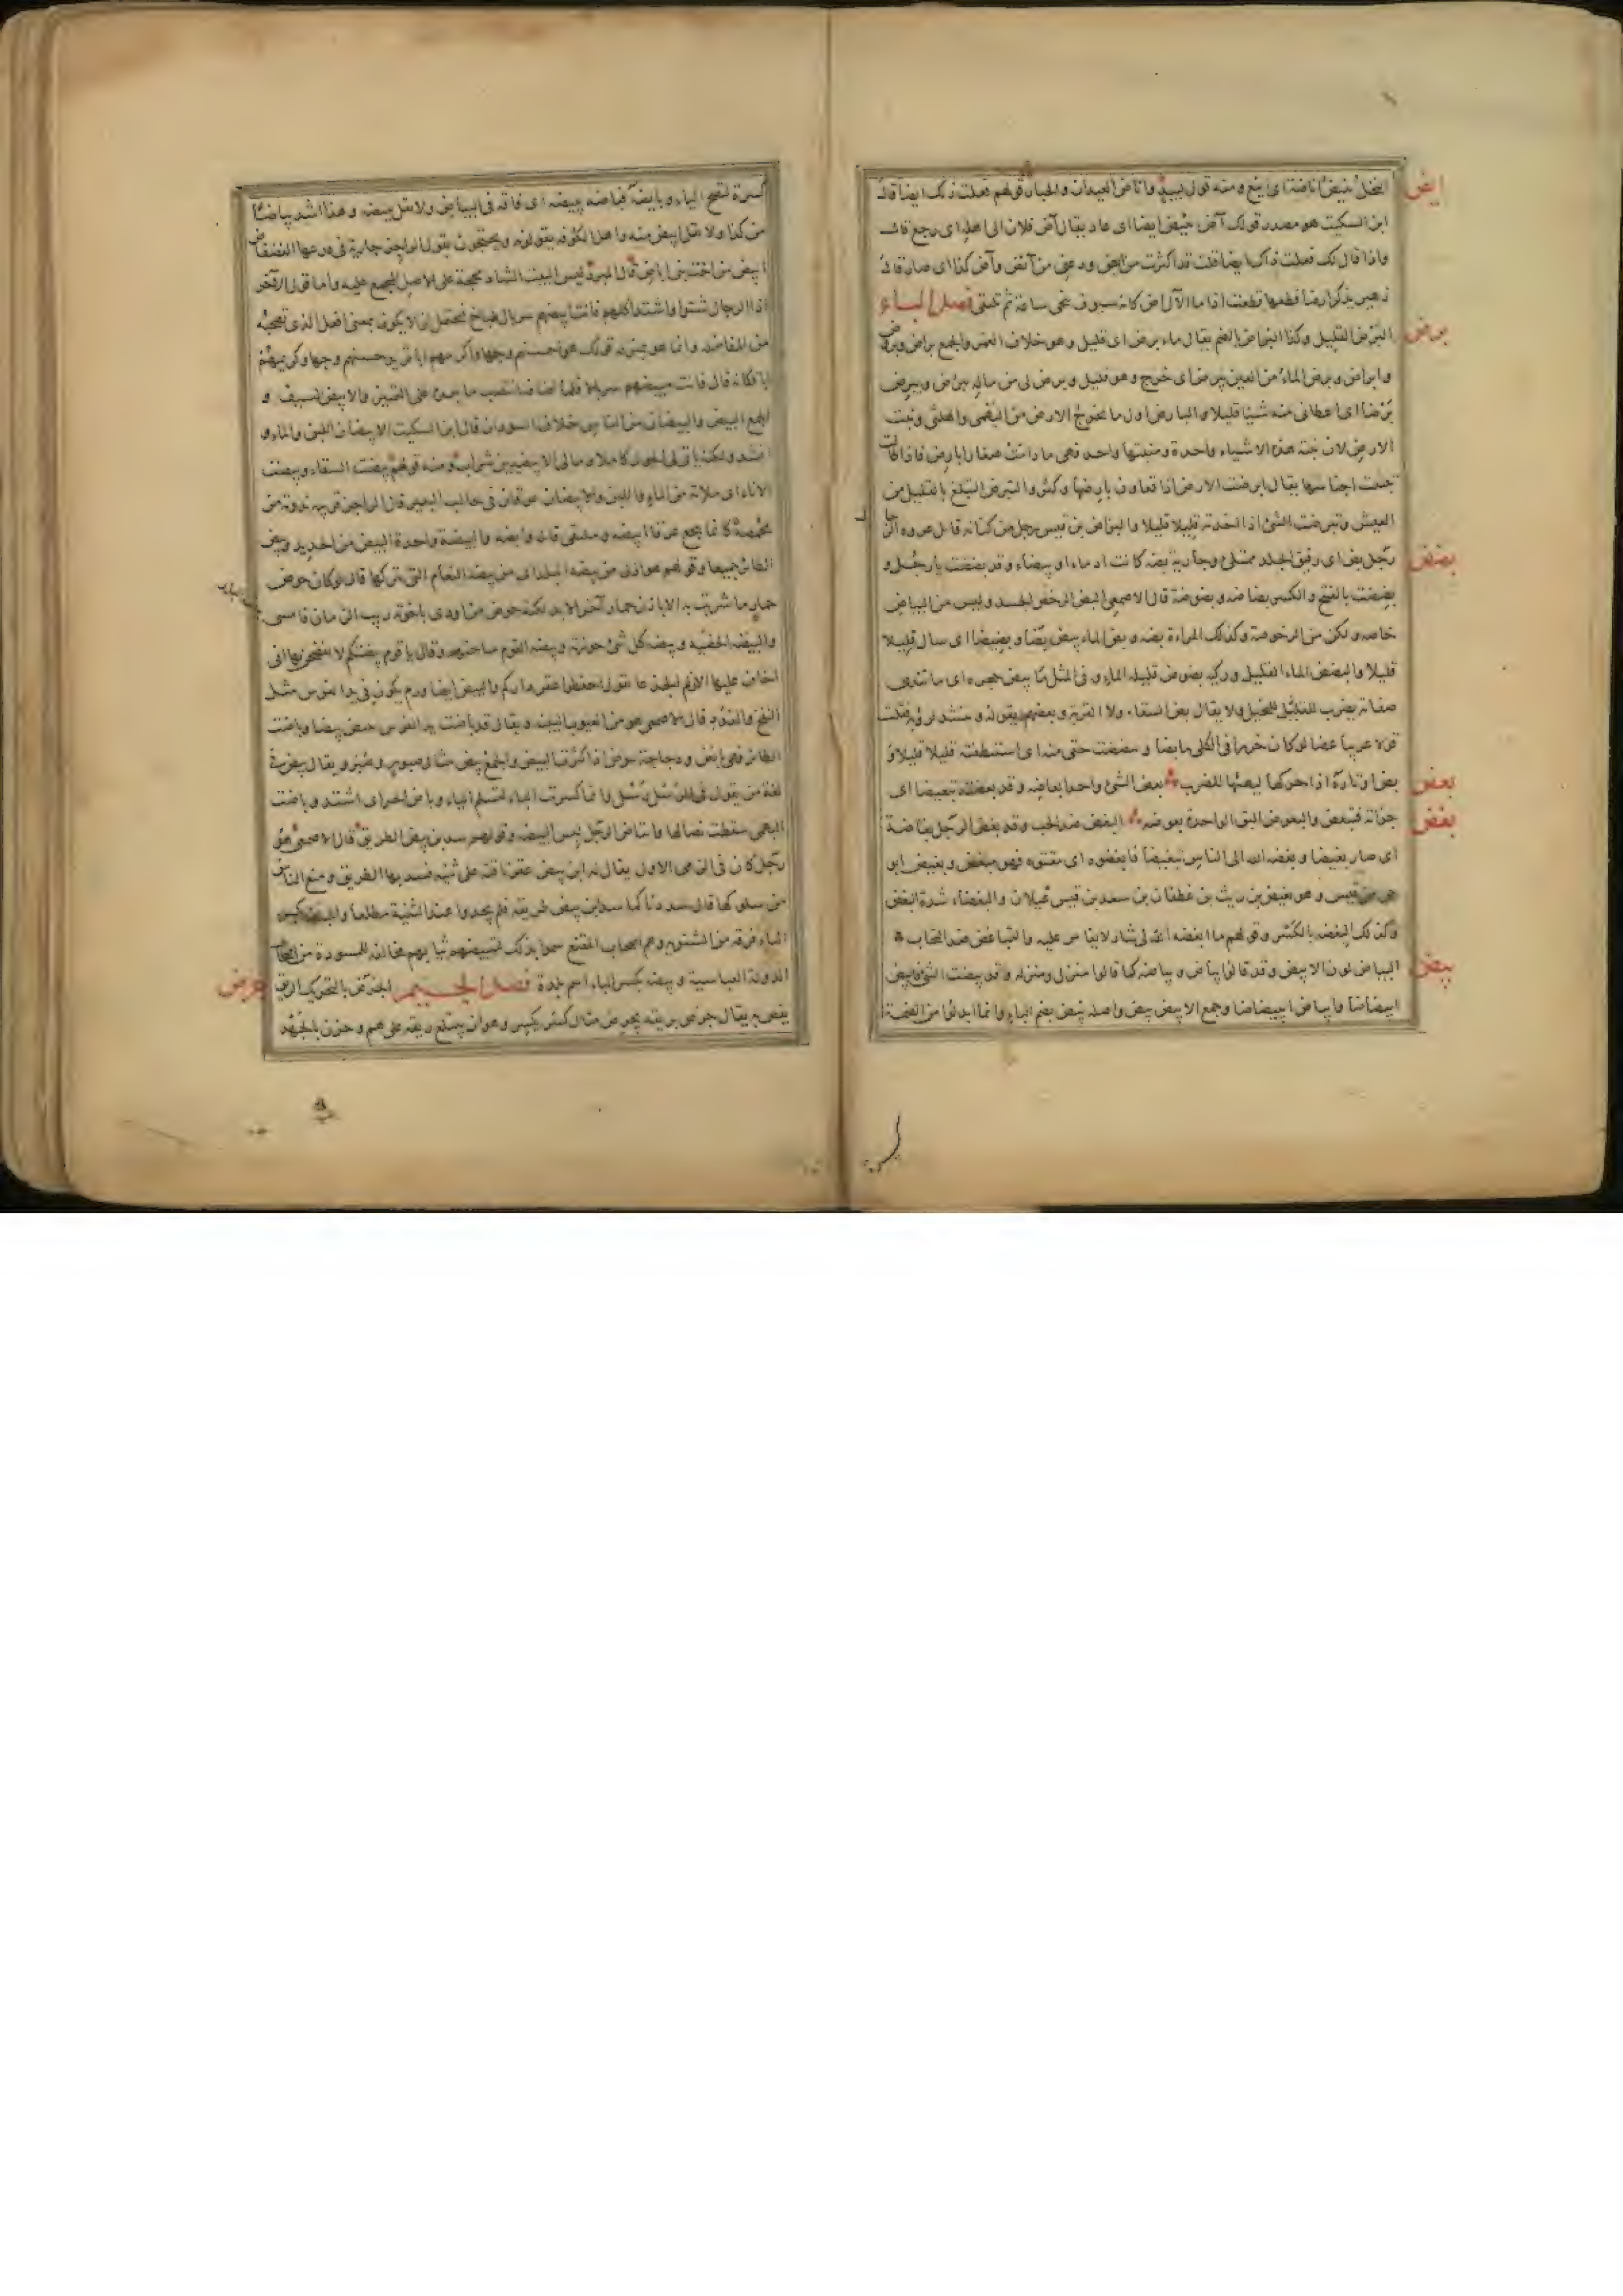 ايض
النخل ينيض اناضة اى اينع ومنه قول لبيد واناض العيدان والجبار قولهم فعلت ذلك ايضا قال
ابن السكيت هو مصدر قولك آض يئيض ايضا اى عاد يقال آض فلان الى اهله اى رجع قال
واذا قال لك فعلت ذاك ايضا قلت قد اكثرت من ايض ودعنى من ايض وآض كذا اى صار قال
زهير يذكر ارضا قطعها قطعت اذا ما الآل آض كانه سيوف تنحى ساعة ثم تلتقى فصل الباء
برض
البرض القليل وكذا البراض بالضم يقال ماء برض اى قليل وهو خلاف الغمر والجمع براض وبروض
وابراض وبرض الماء من العين يبرض اى خرج وهو قليل وبرض لى من ماله يبرض ويبرض
برضا اى اعطانى منه شيئا قليلا والبارض اول ما تخرج الارض من البهمى والهلتى وبنت
الارض لان نبتة هذه الاشياء واحدة ومنبتها واحد فهى ما دامت صغارا بارض فاذا طالت
تبينت اجناسها يقال ابرضت الارض اذا تعاون بارضها وكثر والتبرض التبلغ بالقليل من
العيش وتبرضت الشئ اذا اخذته قليلا قليلا والبراض بن قيس رجل من كنانة قاتل عروة الرحال
بضض
رجل بض اى رقيق الجلد ممتلئ وجارية بضة كانت ادماء او بيضاء وقد بضضت يا رجل و
بضضت بالفتح والكسر بضاضة وبضوضة قال الاصمعى البض الرخص الجسد وليس من البياض
خاصة ولكن من الرخوصة وكذلك المراة بضة وبض الماء يبض بضا وبضيضا اى سال قليلا
قليلا والبضض الماء القليل وركية بضوض قليلة الماء وفى المثل ما يبض حجره اى ما تندى
صفاته يضرب للبخيل ولا يقال بض السقاء ولا القربة وبعضهم يقوله وينشد لرؤبة فقلت
قولا عربيا غضا لو كان خرزا فى الكلى ما بضا و
بعض
بعض الشئ واحد ابعاضه وقد بعضته تبعيضا اى
بغض
جزاته فتبعض والبعوض البق الواحدة بعوضة البغض ضد الحب وقد بغض الرجل بغاضة
اى صار بغيضا وبغضه الله الى الناس تبغيضا فابغضوه اى مقتوه فهو مبغض وبغيض ابو
حى من قيس وهو بغيض بن ريث بن غطفان بن سعد بن قيس عيلان والبغضاء شدة البغض
وكذلك البغضة بالكسر وقولهم ما ابغضه الى شاذ لا يقاس عليه والتباغض ضد التحاب
بيض
البياض لون الابيض وقد قالوا بياض وبياضة كما قالوا منزل ومنزلة وقد بيضت الشئ فابيض
ابيضاضا وابياض ابييضاضا وجمع الابيض بيض واصله بيض بضم الباء وانما ابدلوا من الضمة
كسرة لتصح الياء وبايضه فباضه يبيضه اى فاقه فى البياض ولا تقل يبوضه وهذا اشد بياضا
من كذا ولا تقل ابيض منه واهل الكوفة يقولونه ويحتجون بقول الراجز جارية فى درعها الفضفاض
ابيض من اخت بنى اباض قال المبرد ليس البيت الشاذ بحجة على الاصل المجمع عليه واما قول الآخر
اذا الرجال شتوا واشتد اكلهم فانت ابيضهم سربال طباخ فيحتمل ان لا يكون بمعنى افعل الذى تصحبه
من للمفاضلة وانما هو بمنزلة قولك هو احسنهم وجها واكرمهم ابا تريد حسنهم وجها وكريمهم
ابا فكانه قال فانت مبيضهم سربالا فلما اضافه انتصب ما بعده على التمييز والابيض السيف و
الجمع البيض والبيضان من الناس خلاف السودان قال ابن السكيت الابيضان اللبن والماء و
انشد ولكنه ياتى لى الحول كاملا ومالى الا الابيضين شراب ومنه قولهم بيضت السقاء وبيضت
الاناء اى ملاته من الماء واللبن والابيضان عرقان فى حالب البعير قال الراجز قريبة ندوته من
محمضه كانما ييجع عرقا ابيضه وملتقى فائله وابضه والبيضة واحدة البيض من الحديد وبيض
الطائر جميعا وقولهم هو اذل من بيضة البلد اى من بيضة النعام التى تتركها قال لو كان حوض
حمار ما شربت به الا باذن حمار آخر الابد لكنه حوض من اودى باخوته ريب الزمان فامسى
بيضة البلد
والبيضة الخصية وبيضة كل شئ حوزته وبيضة القوم ساحتهم وقال يا قوم بيضتكم لا تفضحن بها انى
اخاف عليها الازلم الجذعا يقول احفظوا عقر داركم والبيض ايضا ورم يكون فى يد الفرس مثل
النفخ والغدد قال الاصمعى هو من العيوب الهينة ويقال قد باضت يد الفرس تبيض بيضا وباضت
الطائر فهى بائض ودجاجة بيوض اذا اكثرت البيض والجمع بيض مثال صبور وصبر ويقال بيض فى
لغة من يقول فى الرسل رسل وانما كسرت الباء لتسلم الياء وباض الحر اى اشتد وباضت
البهمى سقطت نصالها وابتاض الرجل لبس البيضة وقولهم سد ابن بيض الطريق قال الاصمعى هو
رجل كان فى الزمن الاول يقال له ابن بيض عقر ناقته على ثنية فسد بها الطريق ومنع الناس
من سلوكها قال سددنا كما سد ابن بيض طريقه فلم يجدوا عند الثنية مطلعا والمبيضة بكسر
الياء فرقة من الثنوية وهم اصحاب المقنع سموا بذلك لتبييضهم ثيابهم مخالفة للمسودة من اصحاب
الدولة العباسية وبيضة بكسر الباء اسم بلدة فصل الجيم الجرض بالتحريك الريق
جرض
يغص به يقال جرض بريقه يجرض مثال كسر يكسر وهو ان يبتلع ريقه على هم وحزن بالجهد